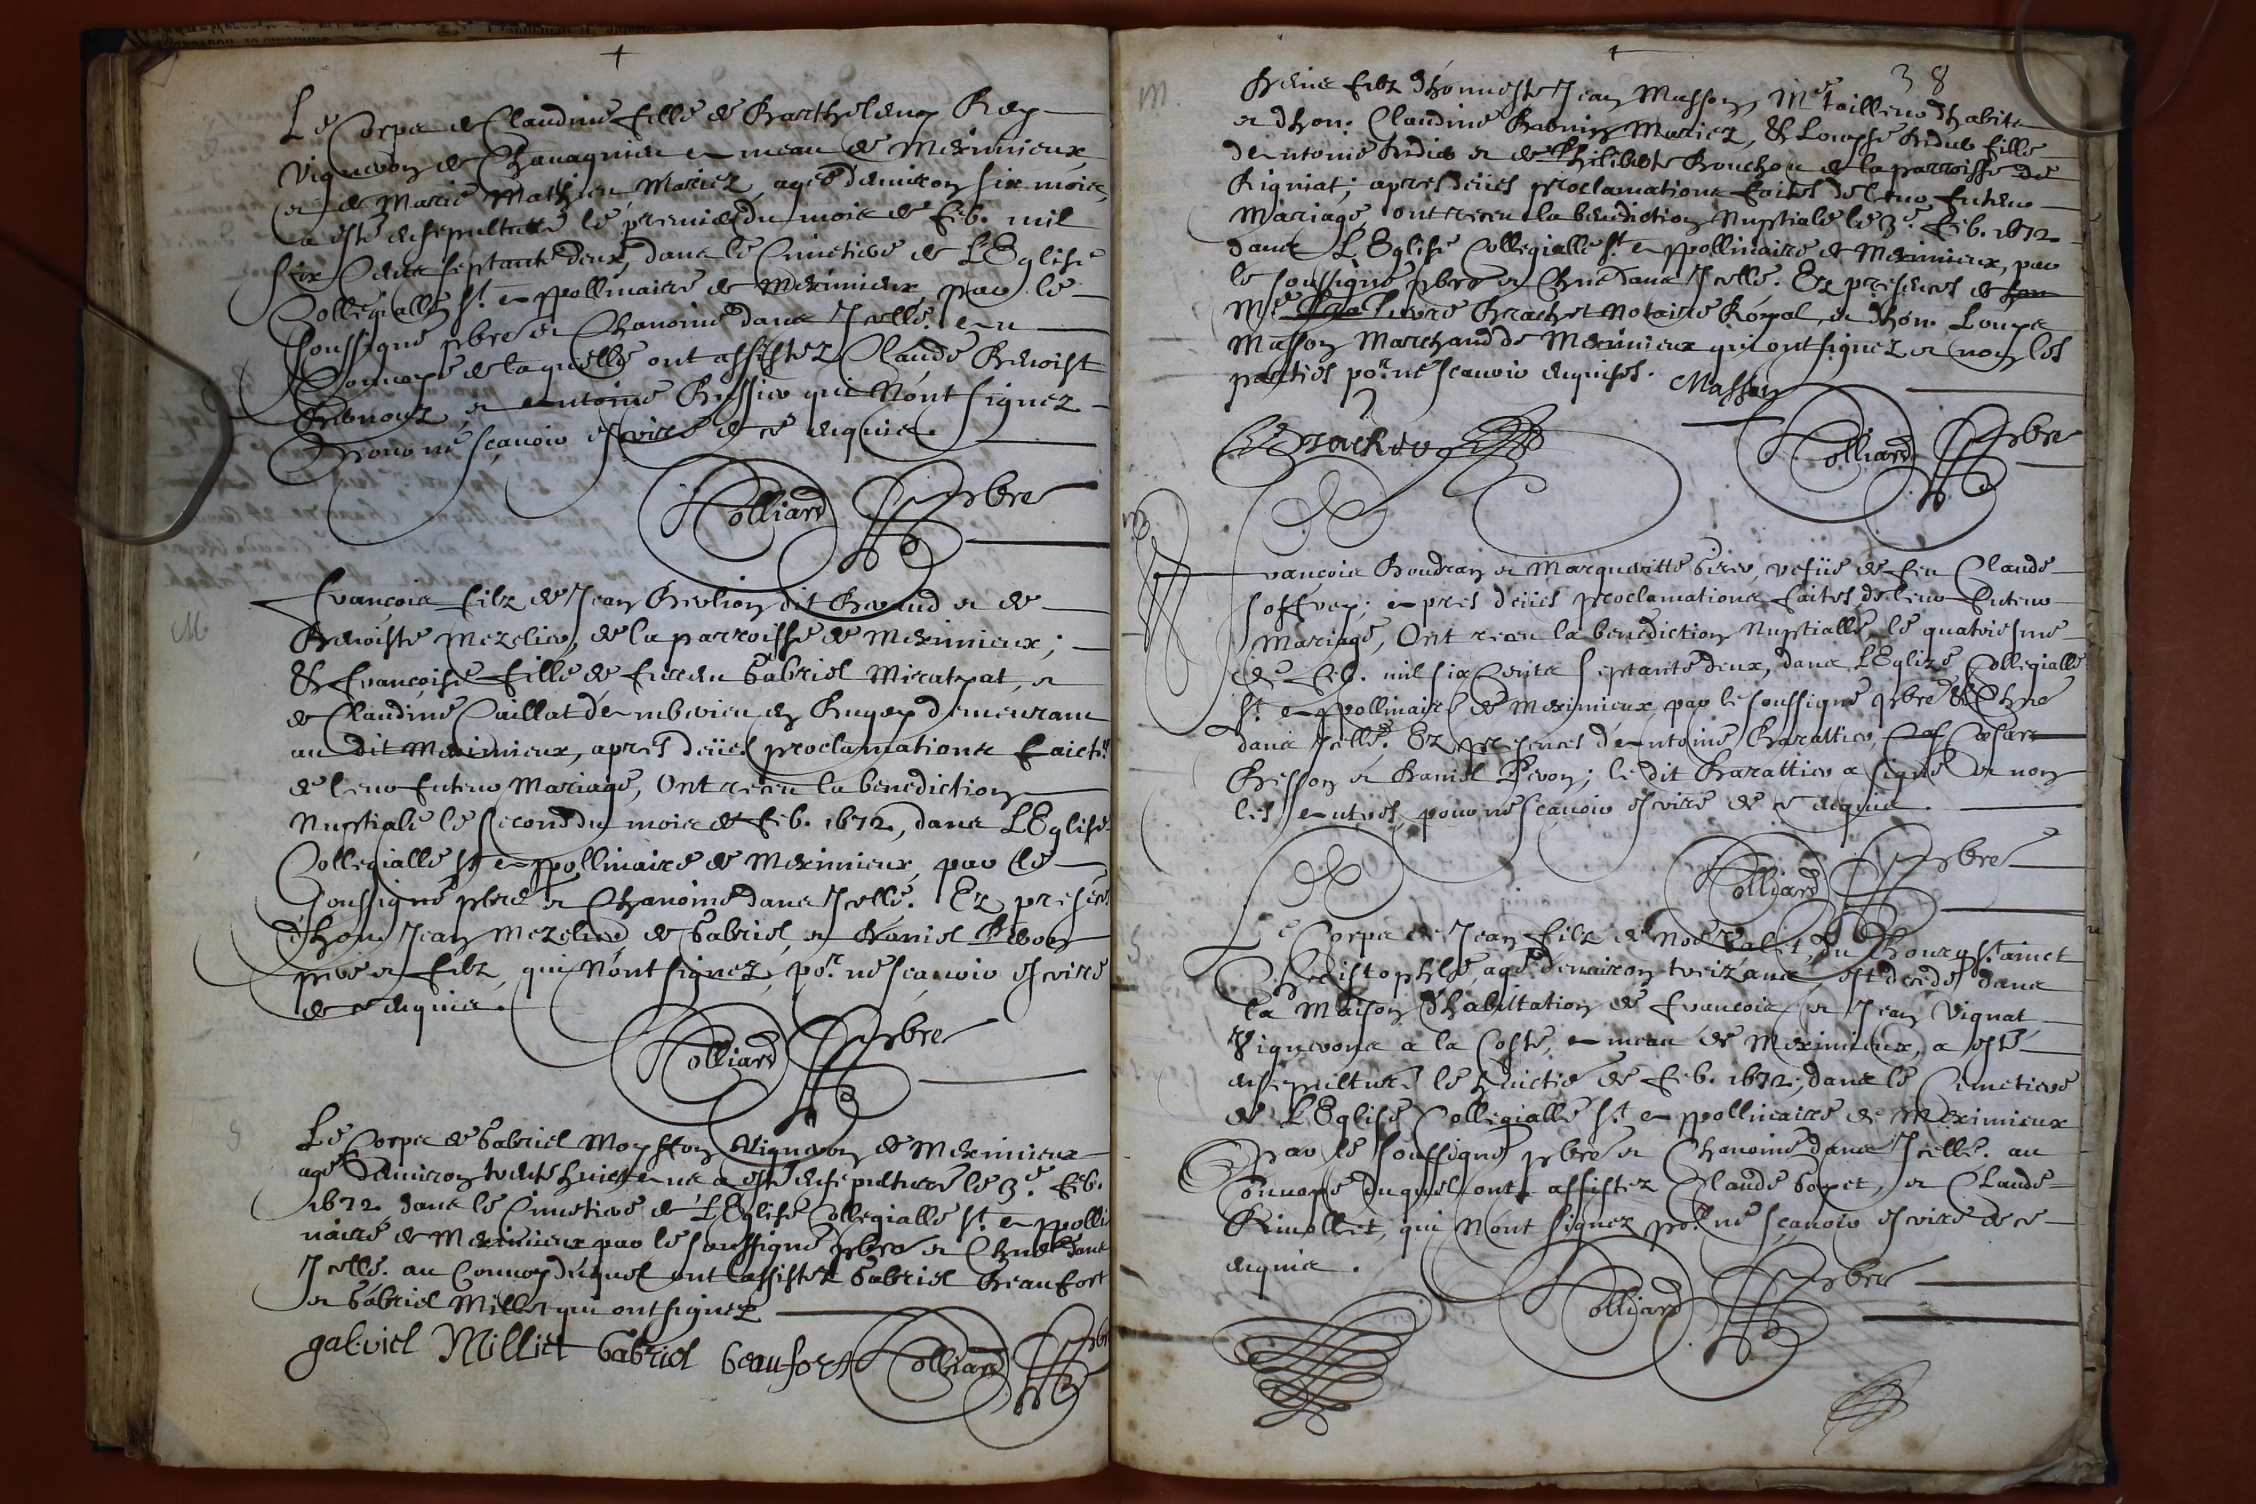 Le Corps de Claudine fille de Barthelemy Rey
Vigneron de Chavagnieu hameau de Meximieux
et de Marie Mathieu Mariez, agée d'environ six mois,
a esté ensepulturé le premier du mois de feb. mil
six Cents septante deux, dans le Cimetiere de L'Eglise
Collegialle St. Appollinaire de Meximieux par le
soussigné pbre et Chanoine dans Icelle. Au
Convoye de laquelle ont assistez Claude Benoist
et Antoine Bussier qui N'ont signez
pour ne sçavoir escrire de ce enquis.
Colliard pbre
M
François filz de Jean dit et de
Benoiste Mezelier, de la parroisse de Meximieux;
Et Françoise fille de furent Gabriel Miratpat, et
de Claudine Caillat d'Ambvrieu en Bugey demeurant
au dit Meximieux, apres deües proclamations faictes
de leur futeur Mariage, Ont receu la benediction
Nuptiale le second du mois de feb. 1672, dans L'Eglise
Collegialle St Appollinaire de Meximieux par le
soussigné pbre et Chanoine dans Icelle. Ez presences
d'hon. Jean Mezelier de Gabriel et Daniel
pere et filz, qui N'ont signez, por. ne sçavoir escrire
de ce enquis.
Colliard pbre
S
Le Corps de Gabriel Moyffon Vigneron de Meximieux
agé d'environ trente huict ans a esté ensepulturé le 3e. feb.
1672 dans le Cimetiere de L'Eglise Collegialle St. Appolli
naire de Meximieux par le soussigné pbre et Chne dans
Icelle. au Convoy duquel ont assistez Gabriel Beaufort
et Gabriel Milliet qui ont signez
gabriel Milliet Gabriel beaufort Colliard pbr
38
M.
filz d'honneste Jean Masson, Me tailleur d'habits
et d'hon. Claudine Mariez, Et Louyse fille
d'Antoine et de Philiberte Bouchon de la parroisse de
Rigniat; apres deües proclamations faites de leur futeur
Mariage ont receu la benediction Nuptiale le 3e. feb. 1672
dans L'Eglise Collegialle St. Appollinaire de Meximieux, par
le soussigné pbre et Chne dans Icelle. Ez presences de
Me Brachet Notaire Royal, et d'hon. Louys
Masson Marchand de Meximieux qui ont signez et non les
parties por. ne sçavoir enquises. Masson
Brachet Colliard pbre
M
François Boudran et Margueritte Girer, vefüe de feu Claude
Joffrey; apres deües proclamations faites de leur futeur
Mariage, Ont receu la benediction Nuptialle, le quatriesme
de feb. mil six Cents septante deux, dans L'Eglize Collegialle
St. Appollinaire de Meximieux par le soussigné pbre Et Chne
dans Icelle. Ez presences d'Antoine Barattier, Cesar
Besson et Daniel; le dit Barattier a signé et non
les autres, pour ne sçavoir escrire de ce enquis.
Colliard pbre
S
Le Corps de Jean filz de Noé, du Bourg St. ainct
Christophle, agé d'environ treiz'ans, est decedé dans
la Maison d'habitation de François et Jean Vignat
Vignerons a la Coste, hameau de Meximieux, a esté
ensepulturé le huictie de feb. 1672, dans le Cimetiere
de L'Eglise Collegialle St. Appollinaire de Meximieux
par le soussigné pbre et Chanoine dans Icelle. au
Convoye duquel ont assistez Claude Goyet, et Claude
Rimollet, qui N'ont signez por. ne sçavoir escrire de ce
enquis.
Colliard pbre